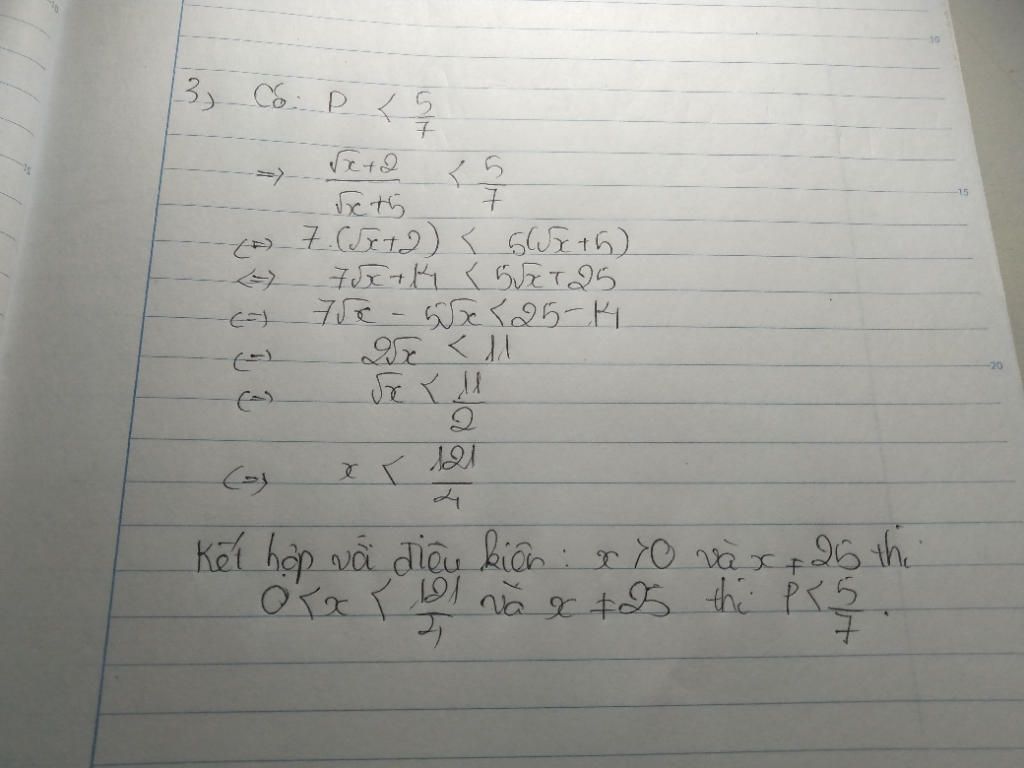 3, Có: P < 5/7
=> (√x+2)/(√x+5) < 5/7
<=> 7.(√x+2) < 5(√x+5)
<=> 7√x+14 < 5√x+25
<=> 7√x - 5√x < 25-14
<=> 2√x < 11
<=> √x < 11/2
<=> x < 121/4
Kết hợp với điều kiện: x > 0 và x ≠ 25 thì
0 < x < 121/4 và x ≠ 25 thì P < 5/7.
10
15
20
15